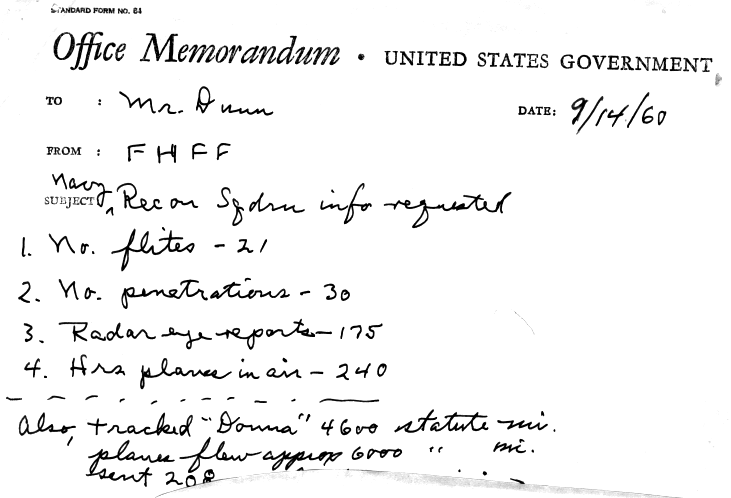 STANDARD FORM NO. 64
Office Memorandum • UNITED STATES GOVERNMENT
TO : Mr. Dunn DATE: 9/14/60
FROM : FHFF
SUBJECT: Navy Recon Sqdrn info requested
1. No. flites - 21
2. No. penetrations - 30
3. Radar eye reports - 175
4. Hrs planes in air - 240
Also, tracked "Donna" 4600 statute mi.
planes flew approx 6000 " mi.
sent 208